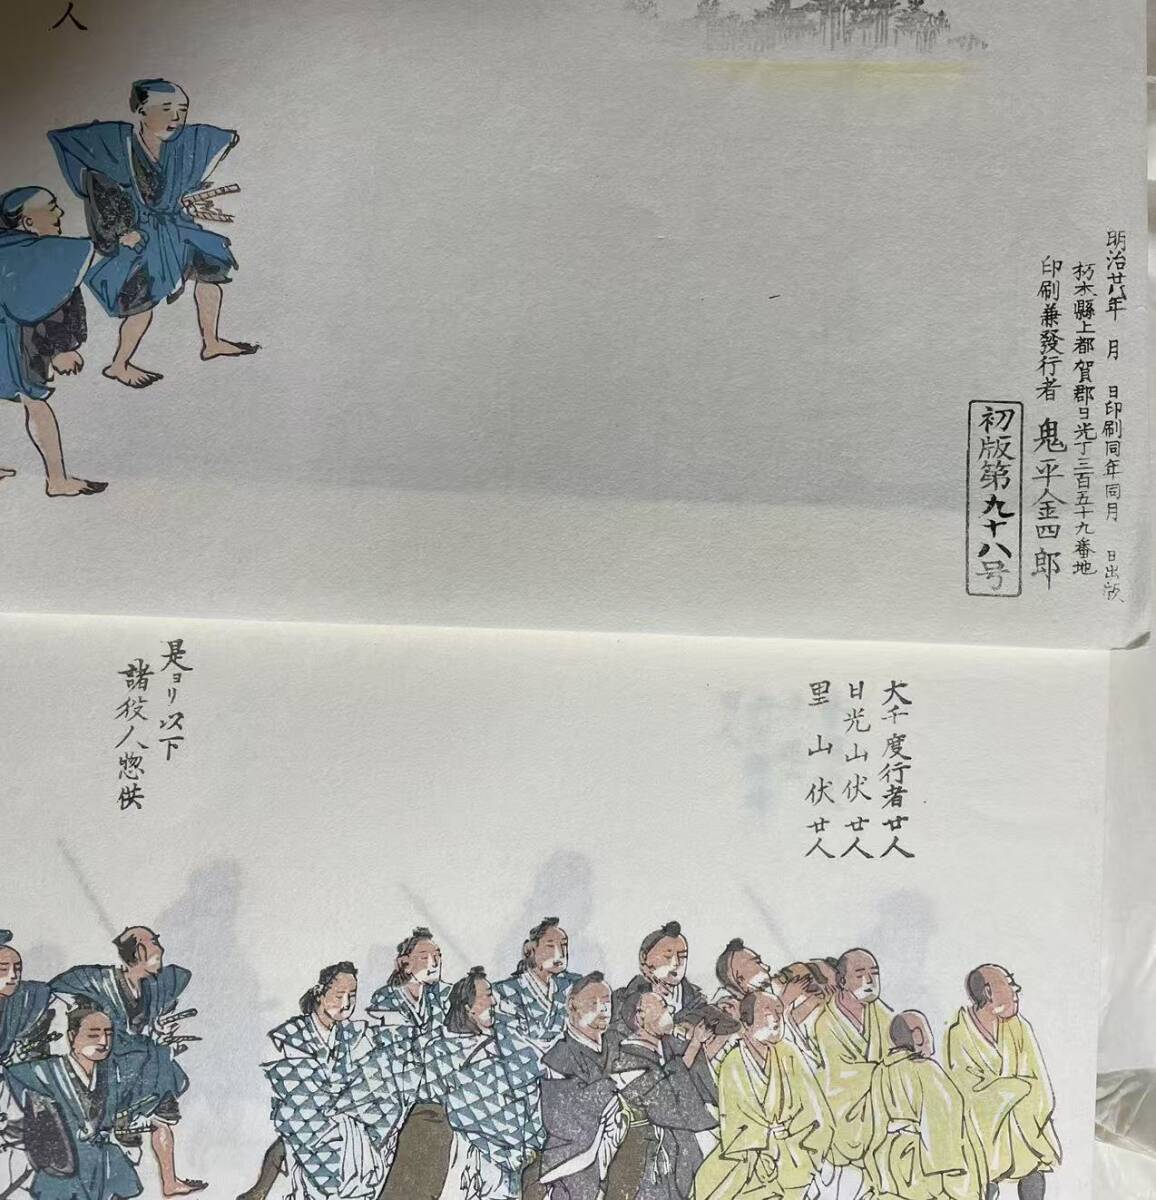 人
明治廿八年 月 日印刷同年同月 日出版
栃木縣上都賀郡日光町三百五十九番地
印刷兼發行者 鬼平金四郎
初版第九十八号
大千度行者廿人
日光山伏廿人
里山伏廿人
是ヨリ以下
諸役人惣供